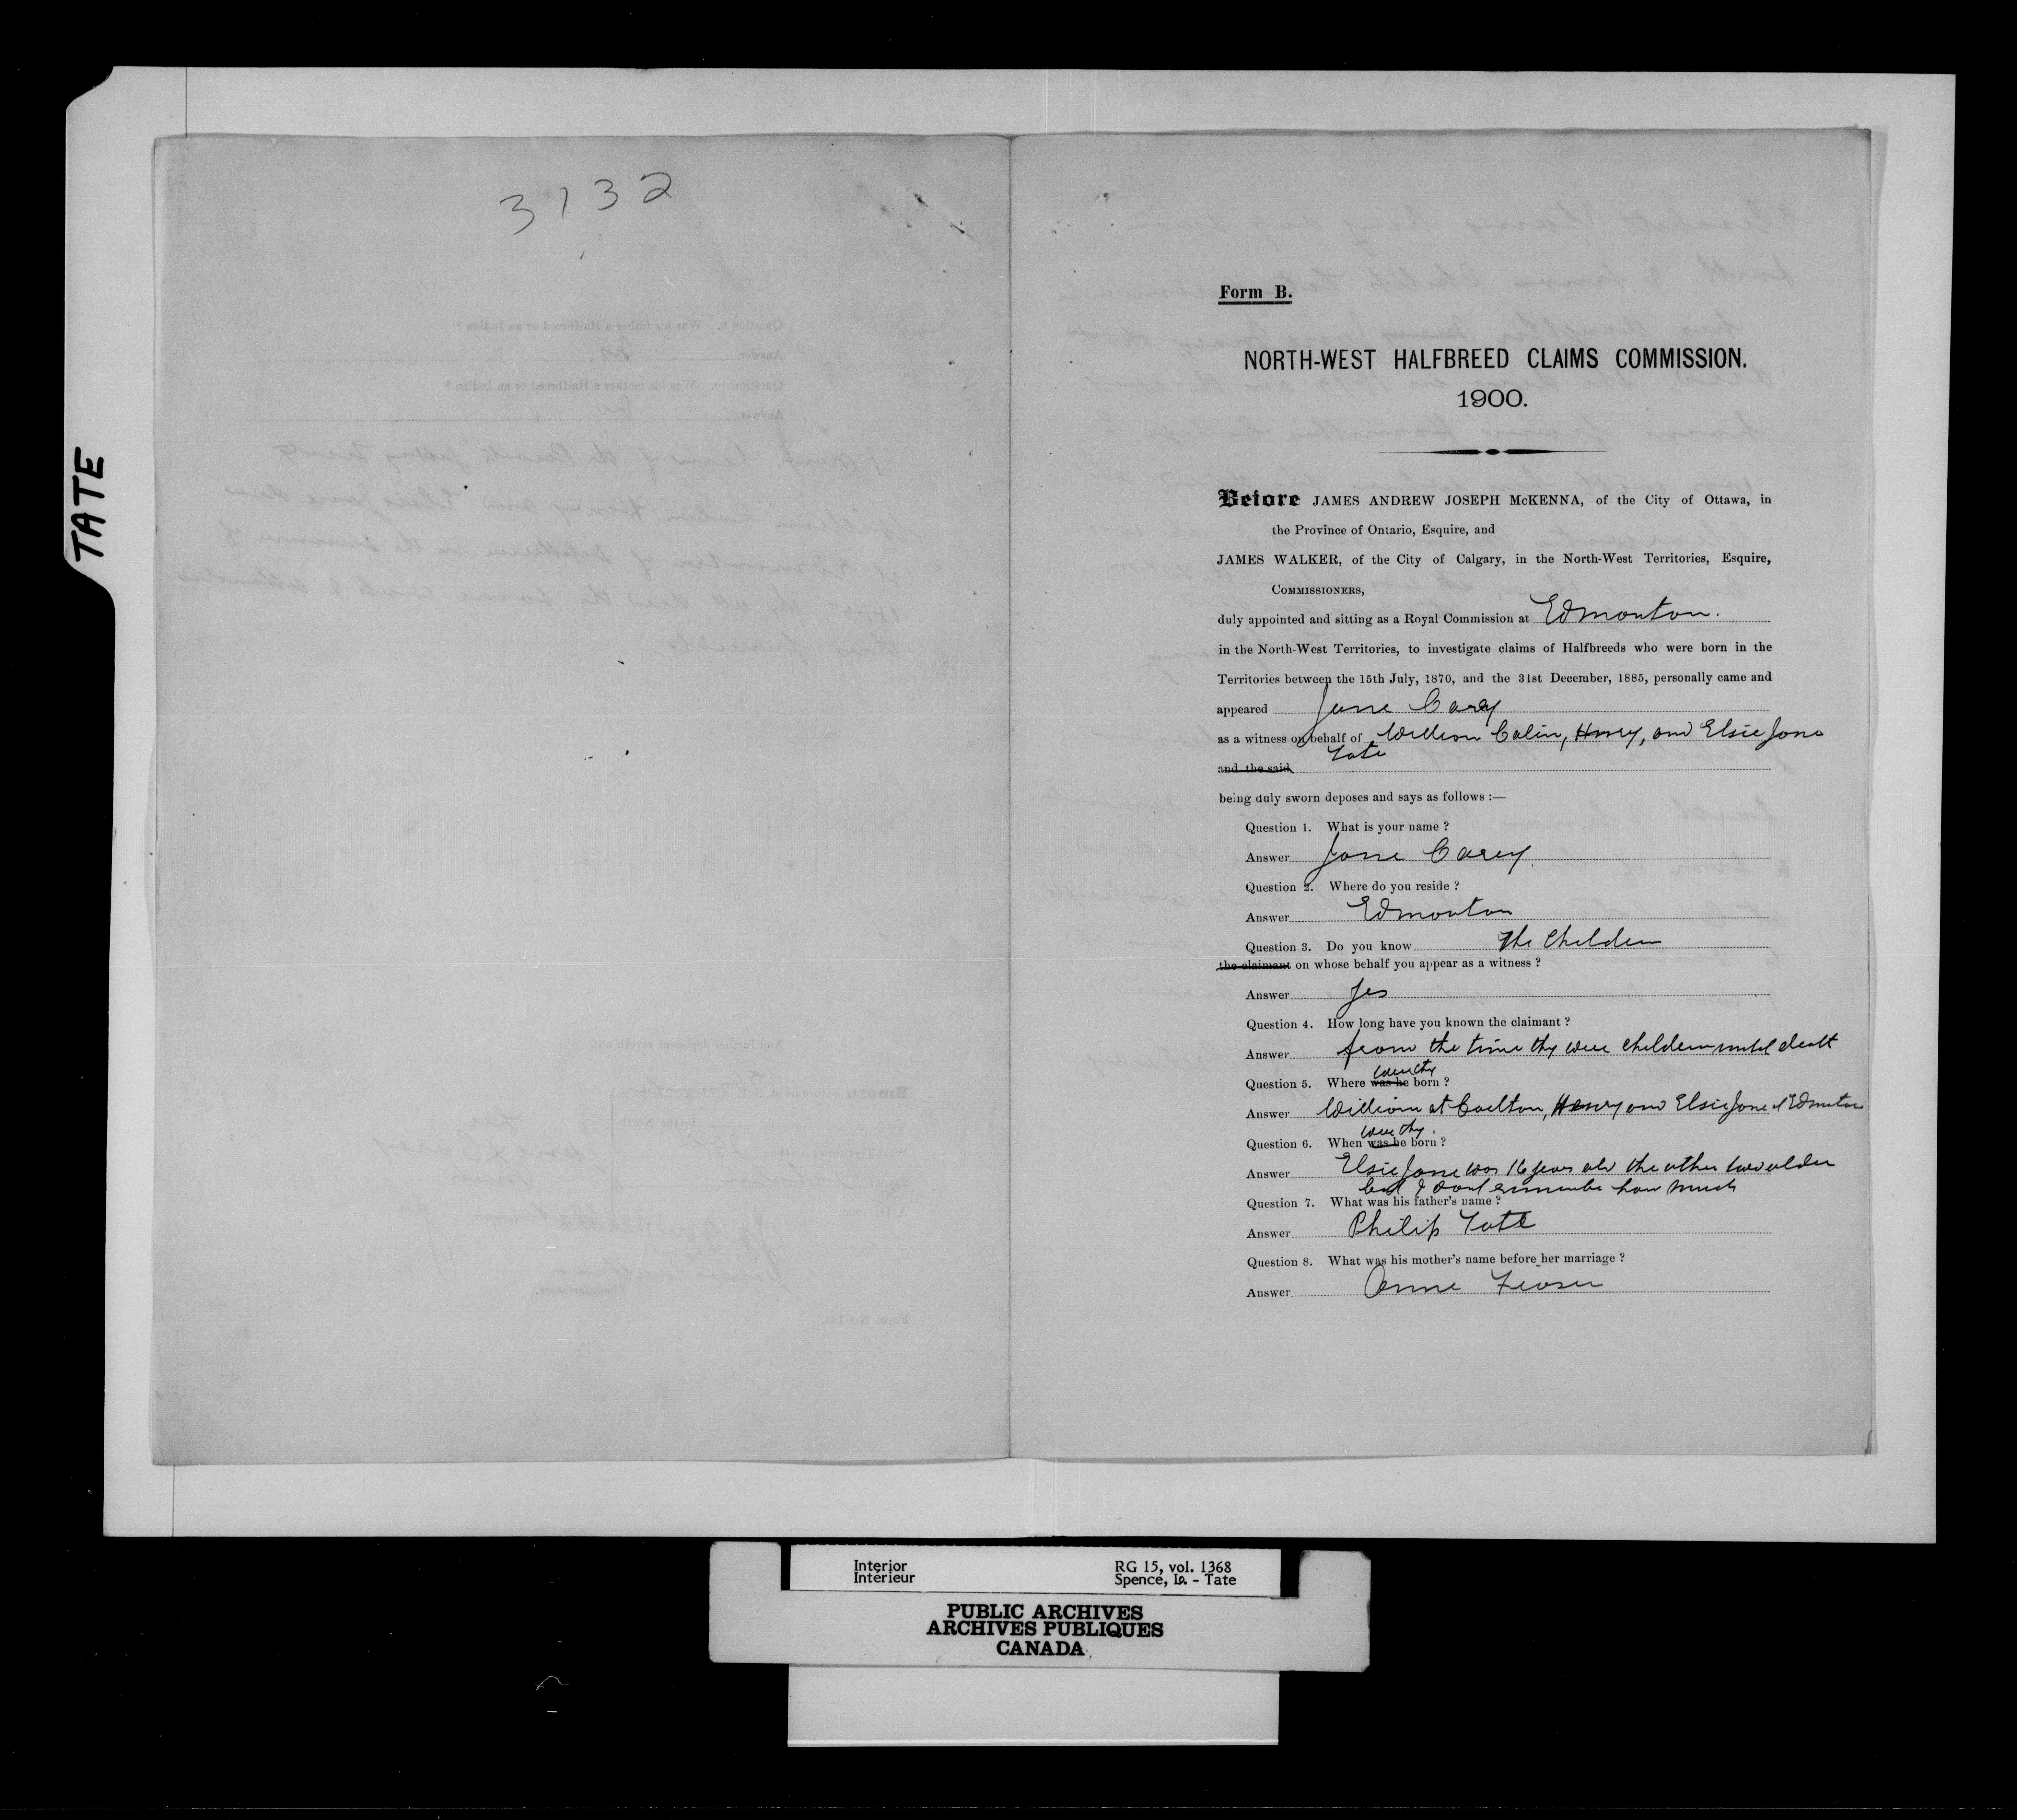 TATE
3132
Form B.
NORTH-WEST HALFBREED CLAIMS COMMISSION.
1900.
Before JAMES ANDREW JOSEPH McKENNA, of the City of Ottawa, in
the Province of Ontario, Esquire, and
JAMES WALKER, of the City of Calgary, in the North-West Territories, Esquire,
COMMISSIONERS,
duly appointed and sitting as a Royal Commission at Edmonton.
in the North-West Territories, to investigate claims of Halfbreeds who were born in the
Territories between the 15th July, 1870, and the 31st December, 1885, personally came and
appeared Jane Carey
as a witness on behalf of William Colin, Henry, and Elsie Jane
and the said Tate
being duly sworn deposes and says as follows :—
Question 1. What is your name ?
Answer Jane Carey.
Question 2. Where do you reside ?
Answer Edmonton
Question 3. Do you know the children
the claimant on whose behalf you appear as a witness ?
Answer Yes
Question 4. How long have you known the claimant ?
Answer from the time thy were children until death
were thy
Question 5. Where was he born ?
Answer William at Carlton, Henry and Elsie Jane at Edmonton
were thy.
Question 6. When was he born ?
Answer Elsie Jane was 16 years old the other two older
but I dont remember how much
Question 7. What was his father's name ?
Answer Philip Tate
Question 8. What was his mother's name before her marriage ?
Answer Anne Fraser
Interior
Intérieur
RG 15, vol. 1368
Spence, Is. - Tate
PUBLIC ARCHIVES
ARCHIVES PUBLIQUES
CANADA